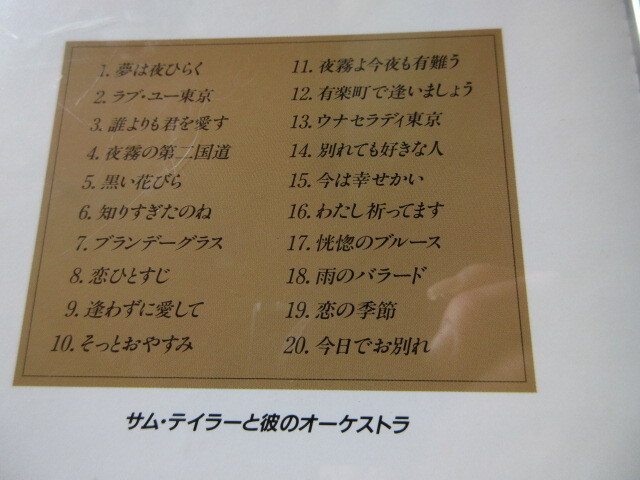 1. 夢は夜ひらく
2. ラブ・ユー東京
3. 誰よりも君を愛す
4. 夜霧の第二国道
5. 黒い花びら
6. 知りすぎたのね
7. ブランデーグラス
8. 恋ひとすじ
9. 逢わずに愛して
10. そっとおやすみ
11. 夜霧よ今夜も有難う
12. 有楽町で逢いましょう
13. ウナセラディ東京
14. 別れても好きな人
15. 今は幸せかい
16. わたし祈ってます
17. 恍惚のブルース
18. 雨のバラード
19. 恋の季節
20. 今日でお別れ
サム・テイラーと彼のオーケストラ